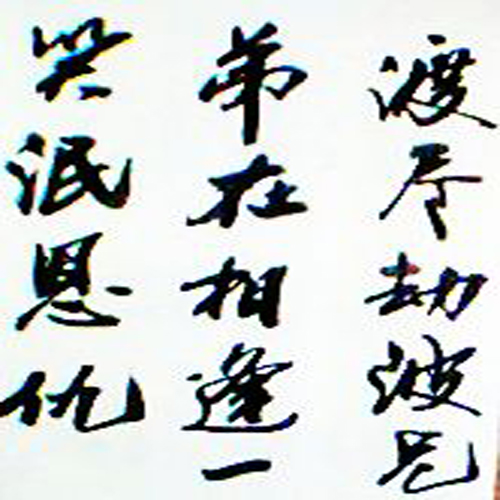 渡尽劫波兄
弟在相逢一
笑泯恩仇